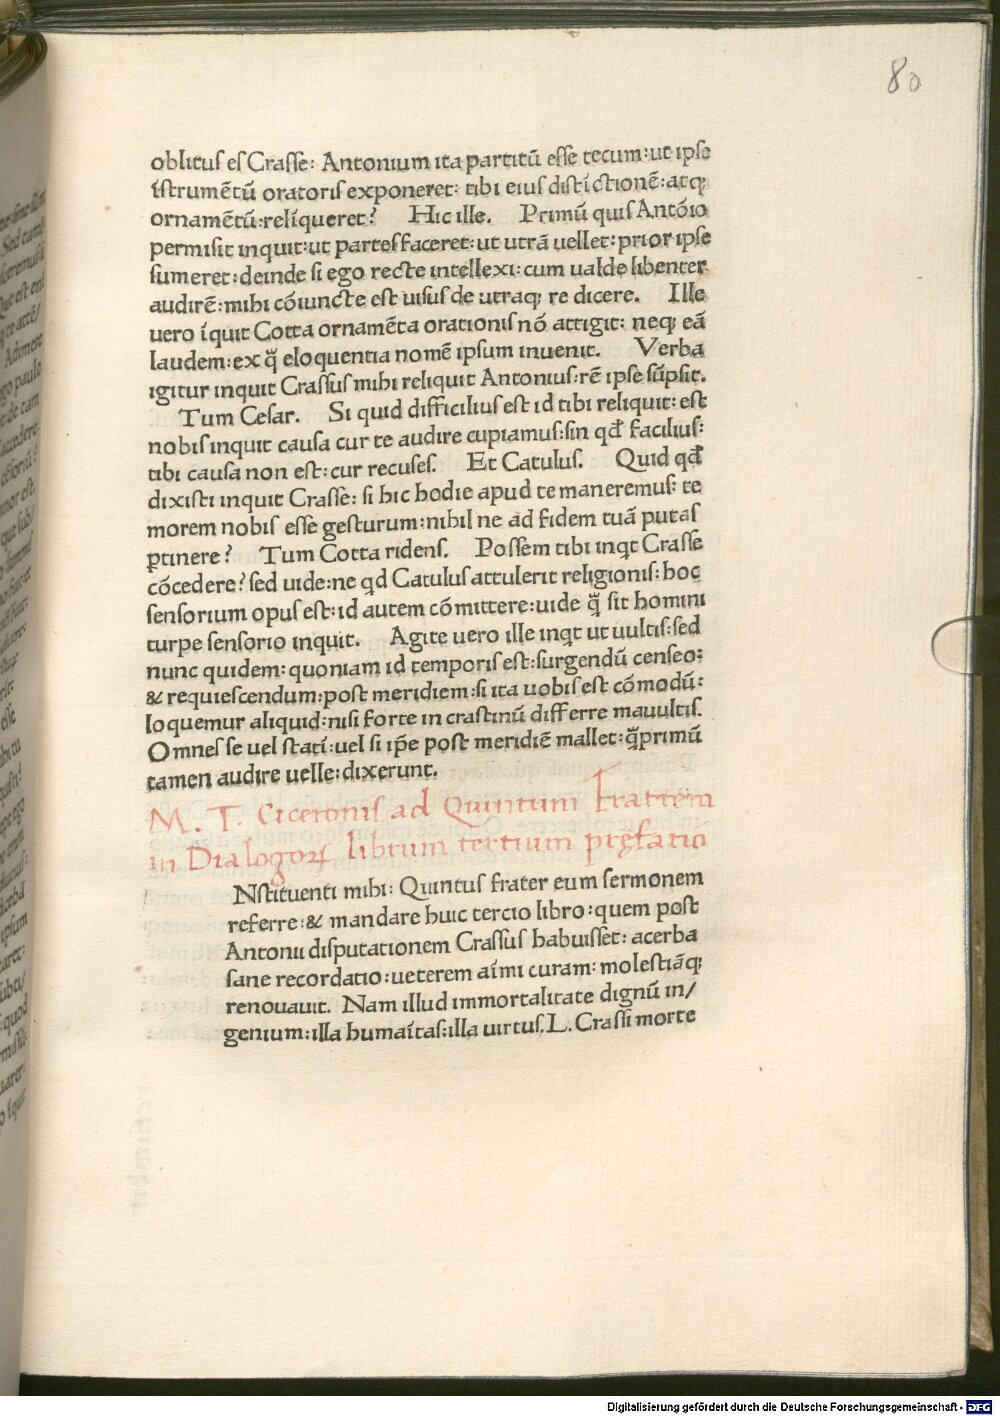 80
oblitus es Crasse: Antonium ita partitū esse tecum: ut ipse
īstrumētū oratoris exponeret: tibi eius distīctionē: atq;
ornamētū: relīqueret? Hic ille. Primū quis Antōio
permisit inquit: ut partes faceret: ut utrā uellet: prior ipse
sumeret: deinde si ego recte intellexi: cum ualde libenter
audirē: mihi cōiuncte est uisus de utraq; re dicere. Ille
uero īquit Cotta ornamēta orationis nō attigit: neq; eā
laudem: ex q̄ eloquentia nomē ipsum inuenit. Verba
igitur inquit Crassus mihi reliquit Antonius: rē ipse sūpsit.
Tum Cesar. Si quid difficilius est id tibi reliquit: est
nobis inquit causa cur te audire cupiamus: sin qđ facilius:
tibi causa non est: cur recuses. Et Catulus. Quid qđ
dixisti inquit Crasse: si hic hodie apud te maneremus: te
morem nobis esse gesturum: nihil ne ad fidem tuā putas
ꝑtinere? Tum Cotta ridens. Possem tibi inqt Crasse
cōcedere? sed uide: ne qd Catulus attulerit religionis: hoc
sensorium opus est: id autem cōmittere: uide q̄ sit homini
turpe sensorio inquit. Agite uero ille inqt ut uultis: sed
nunc quidem: quoniam id temporis est: surgendū censeo:
& requiescendum: post meridiem: si ita uobis est cōmodū:
loquemur aliquid: nisi forte in crastinū differre mauultis.
Omnes se uel statī: uel si ip̄e post meridiē mallet: q̄primū
tamen audire uelle: dixerunt.
M. T. Ciceronis ad Quintum fratrem
in Dialogoꝝ librum tertium pręfatio
Nstituenti mihi: Quintus frater eum sermonem
referre: & mandare huic tercio libro: quem post
Antonii disputationem Crassus habuisset: acerba
sane recordatio: ueterem aīmi curam: molestiāq;
renouauit. Nam illud immortalitate dignū in/
genium: illa humaītas: illa uirtus. L. Crassi morte
Digitalisierung gefördert durch die Deutsche Forschungsgemeinschaft - DFG